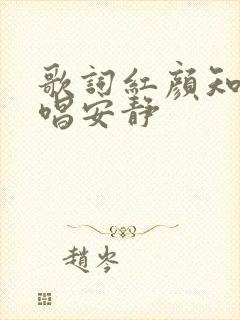 歌詞紅顏知
唱安靜
趙岑